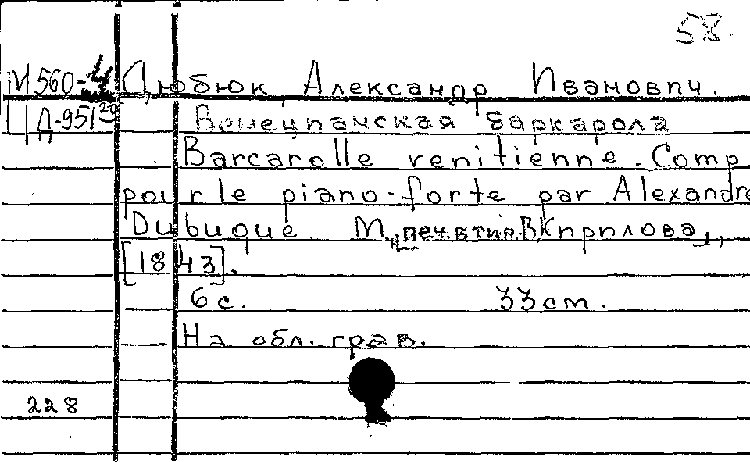 58
М560-4 Дюбюк, Александр Иванович.
Ц Д-951 29 Венецианская баркарола
Barcarolle venitienne. Comp
pour le piano-forte par Alexandre
Dubuque. М., печ. в тип. В. Кирилова,,
[1843].
6 с. 33 cm.
На обл. грав.
228